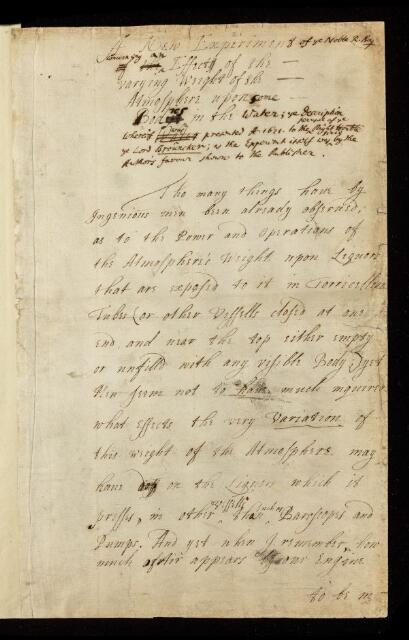 A New Experiment of ye Noble R. Boy
Shewing an Effect of the
varying Weight of the
Atmosphere upon some
Bodies in the Water; ye description
whereof was presented A. 1671. to the Right Honble
ye Lord Brouncker; as the Experimt itself was by the
Authors favour shown to the Publisher.
Tho many things have by
Ingenious men been already observed,
as to the Power and Operations of
the Atmosphere's Weight upon Liquors
that are exposed to it in Torricellian
Tubes (or other Vessells closed at one
end and near the top either empty
or unfilld with any visible Body) yet
Men seeme not to have much inquired
what Effects the very Variation of
this weight of the Atmosphere may
have on the Liquors which it
presses, in other Vessells than Baroscopes and
Pumps. And yet when I remember, how
much appears our Engine
to be in